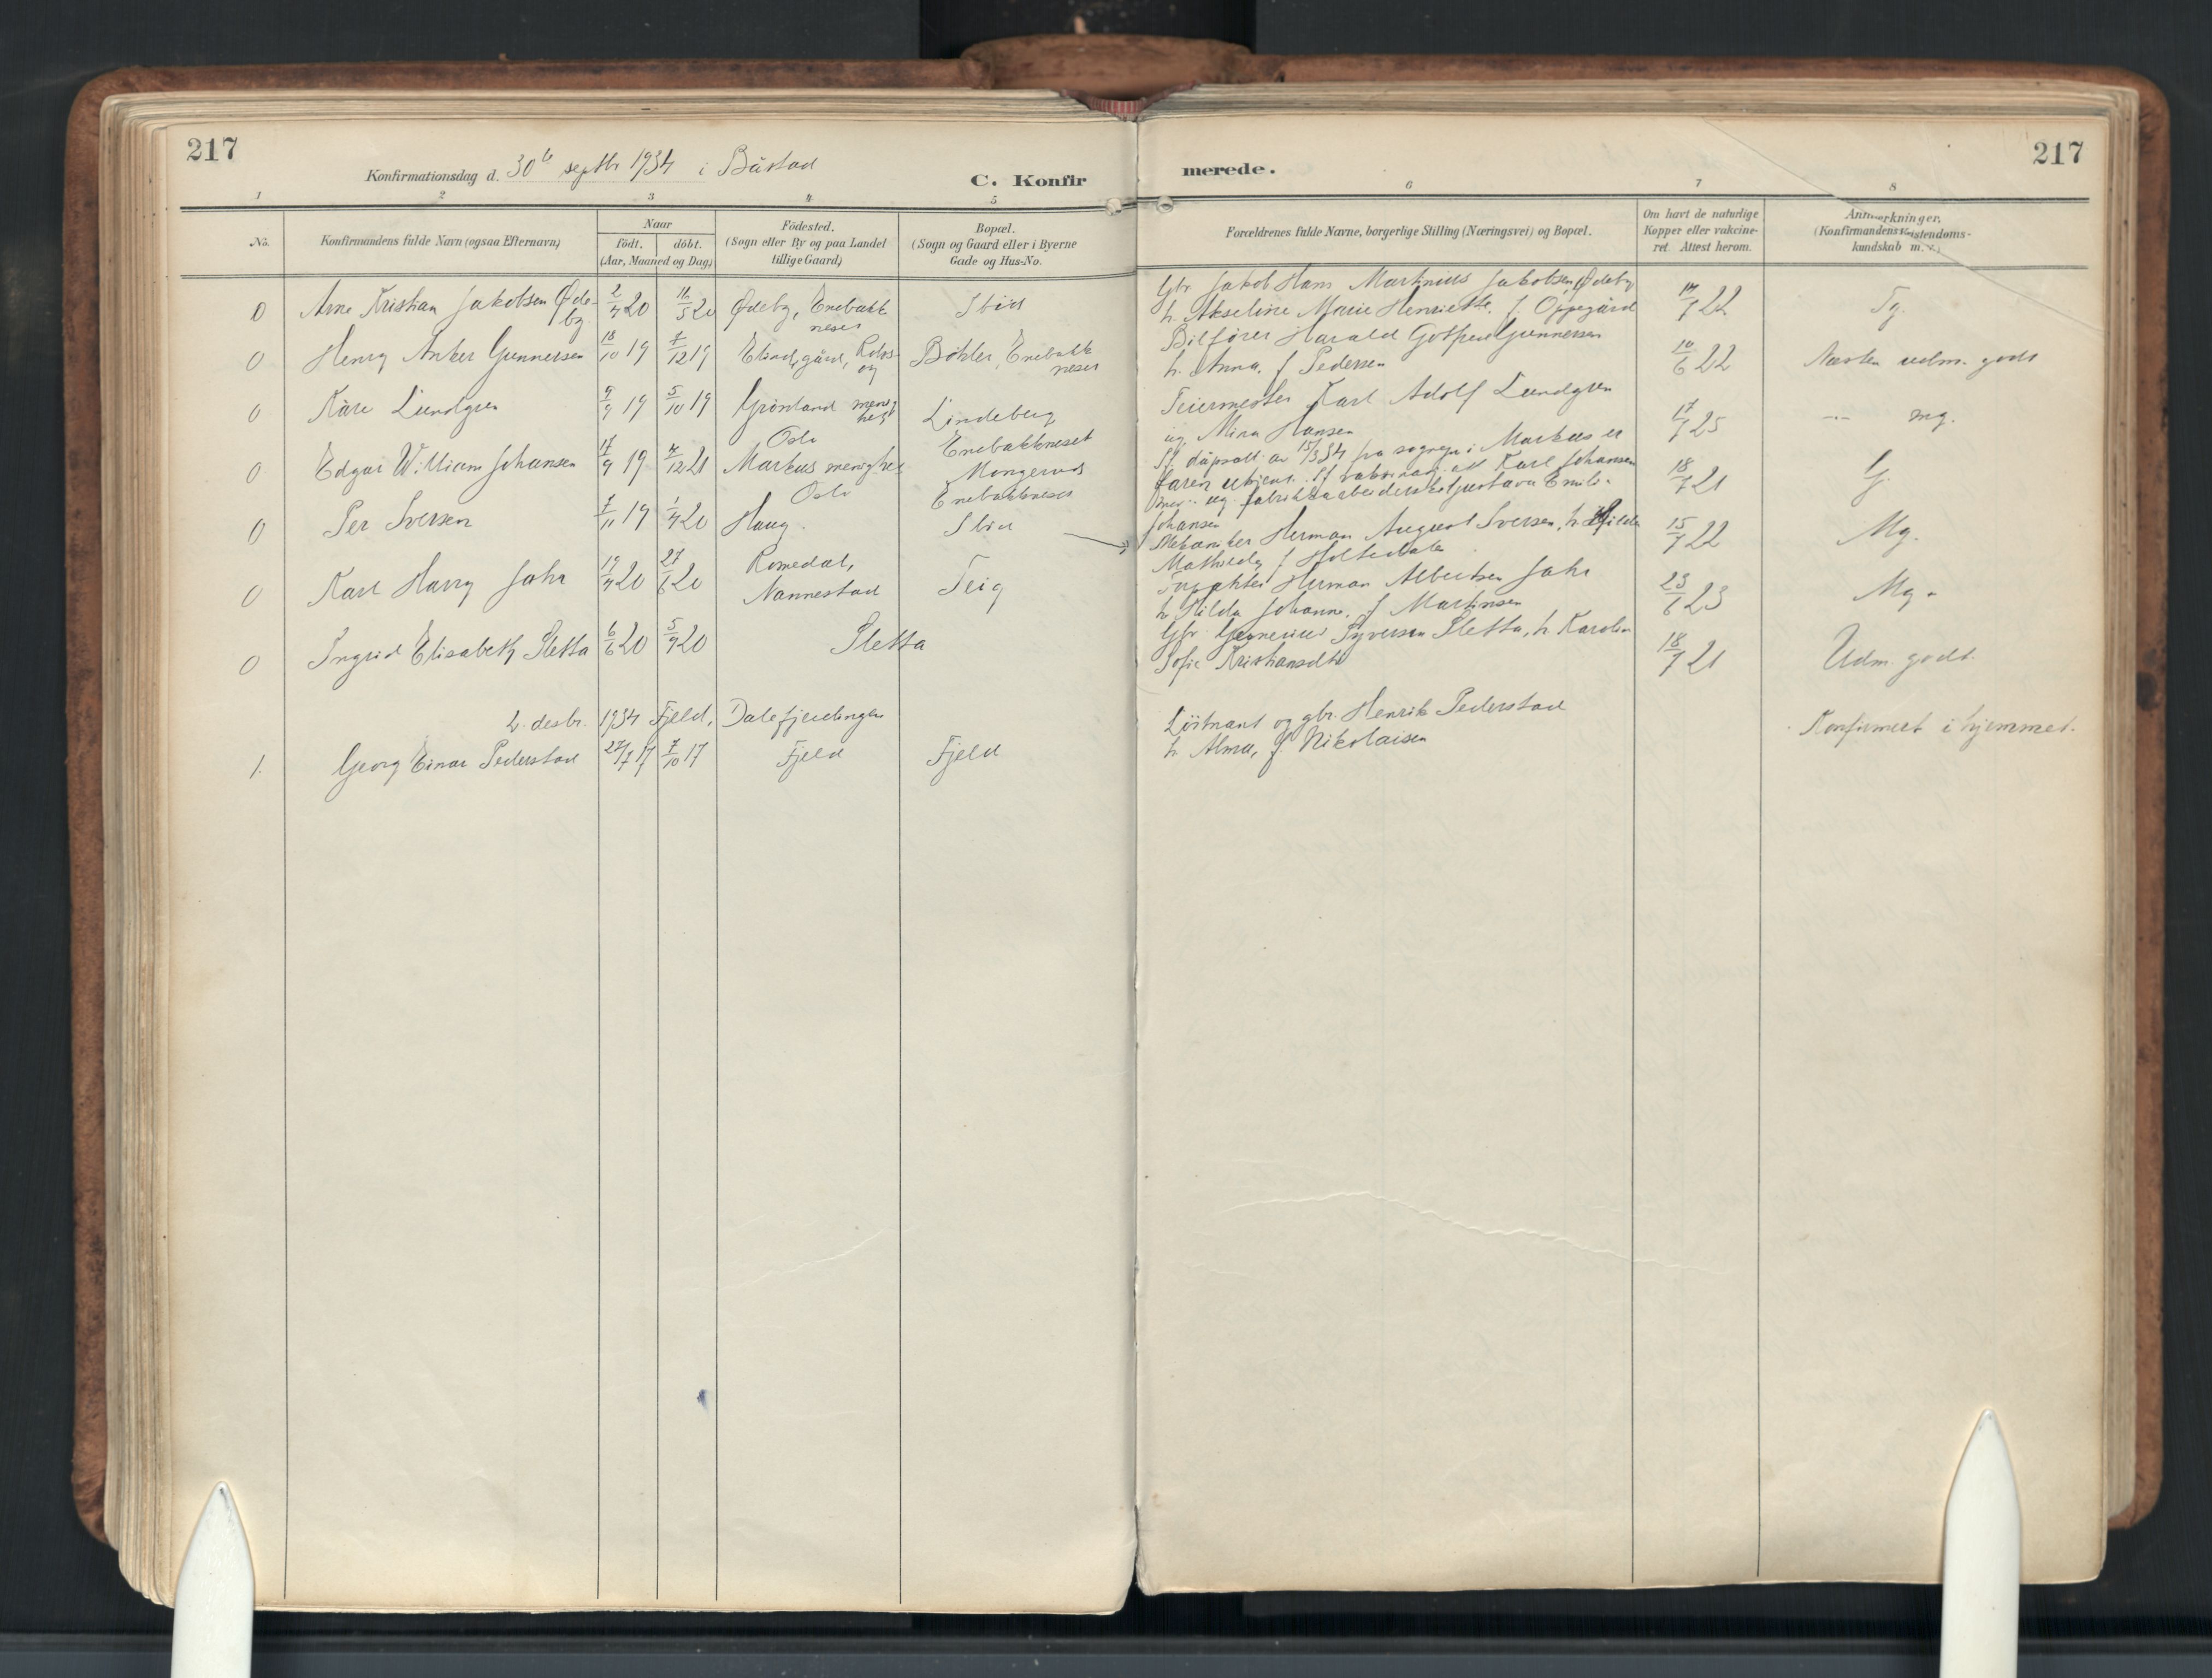 217
Konfirmationsdag d. 30te septbr 1934 i Båstad
C. Konfir
1 2 3 4 5
No.
Konfirmandens fulde Navn (ogsaa Efternavn)
Naar
födt. döbt.
(Aar, Maaned og Dag)
Födested.
(Sogn eller By og paa Landet
tillige Gaard)
Bopæl.
(Sogn og Gaard eller i Byerne
Gade og Hus-No.
0 Arne Kristian Jakobsen Øde- 2/4 20 16/5 20 Ødeby, Enebakk Ibid
by neset
0 Henry Anker Gunnersen 18/10 19 7/12 19 gård, Böhler, Enebakk
neset
0 Kåre Lundgren 9/9 19 5/10 19 Grönland menig Lindeberg
het Oslo Enebakkneset
0 Edgar William Johansen 17/9 19 4/12 21 Markus menighet Mangerud
Oslo Enebakkneset
0 Per Iversen 7/11 19 1/4 20 Haug. Ibid
0 Karl Harry Jahr 19/4 20 27/6 20 Romedal, Teig
Nannestad
0 Ingrid Elisabeth Sletta 6/6 20 5/9 20 Sletta
2. desbr. 1934 Fjeld, Dalefjerdingen
1. Georg Einar Pederstad 27/7 17 7/10 17 Fjeld Fjeld
merede.
217
6 7 8
Forældrenes fulde Navne, borgerlige Stilling (Næringsvei) og Bopæl.
Om havt de naturlige
Kopper eller vakcine-
ret. Attest herom.
Anmerkninger.
(Konfirmandens
kundskab m. v.)
Gbr. Jakob Hans Martinius Jakobsen Ødeby
h. Akseline Marie Henriette, f. Oppegård 14/7 22 Tg.
Bilfører Harald Gotfred Gunnersen
h. Anna, f Pedersen 10/6 22 Næsten udm. godt
Feiermester Karl Adolf Lundgren
ug. Mina Hansen 17/7 25 -"- mg.
If. dåpsatt. av 15/3 34 fra sognepr i Markus er
faren Karl Johansen
ug. fabrikkarbeiderske Gustava Emilie 18/7 21 G.
Johansen
Mekaniker Herman August Iversen, h. Hilda
Mathilde, f 15/7 22 Mg.
Herman Albertsen Jahr
h. Hilda Johanne, f Martinsen 23/6 23 Mg.
Gbr. Syversen Sletta, h. Karoline
Sofie Kristiansdtr 18/7 21 Udm. godt.
Löitnant og gbr. Henrik Pederstad
h. Alma, f. Nikolaisen
Konfirmert i hjemmet.